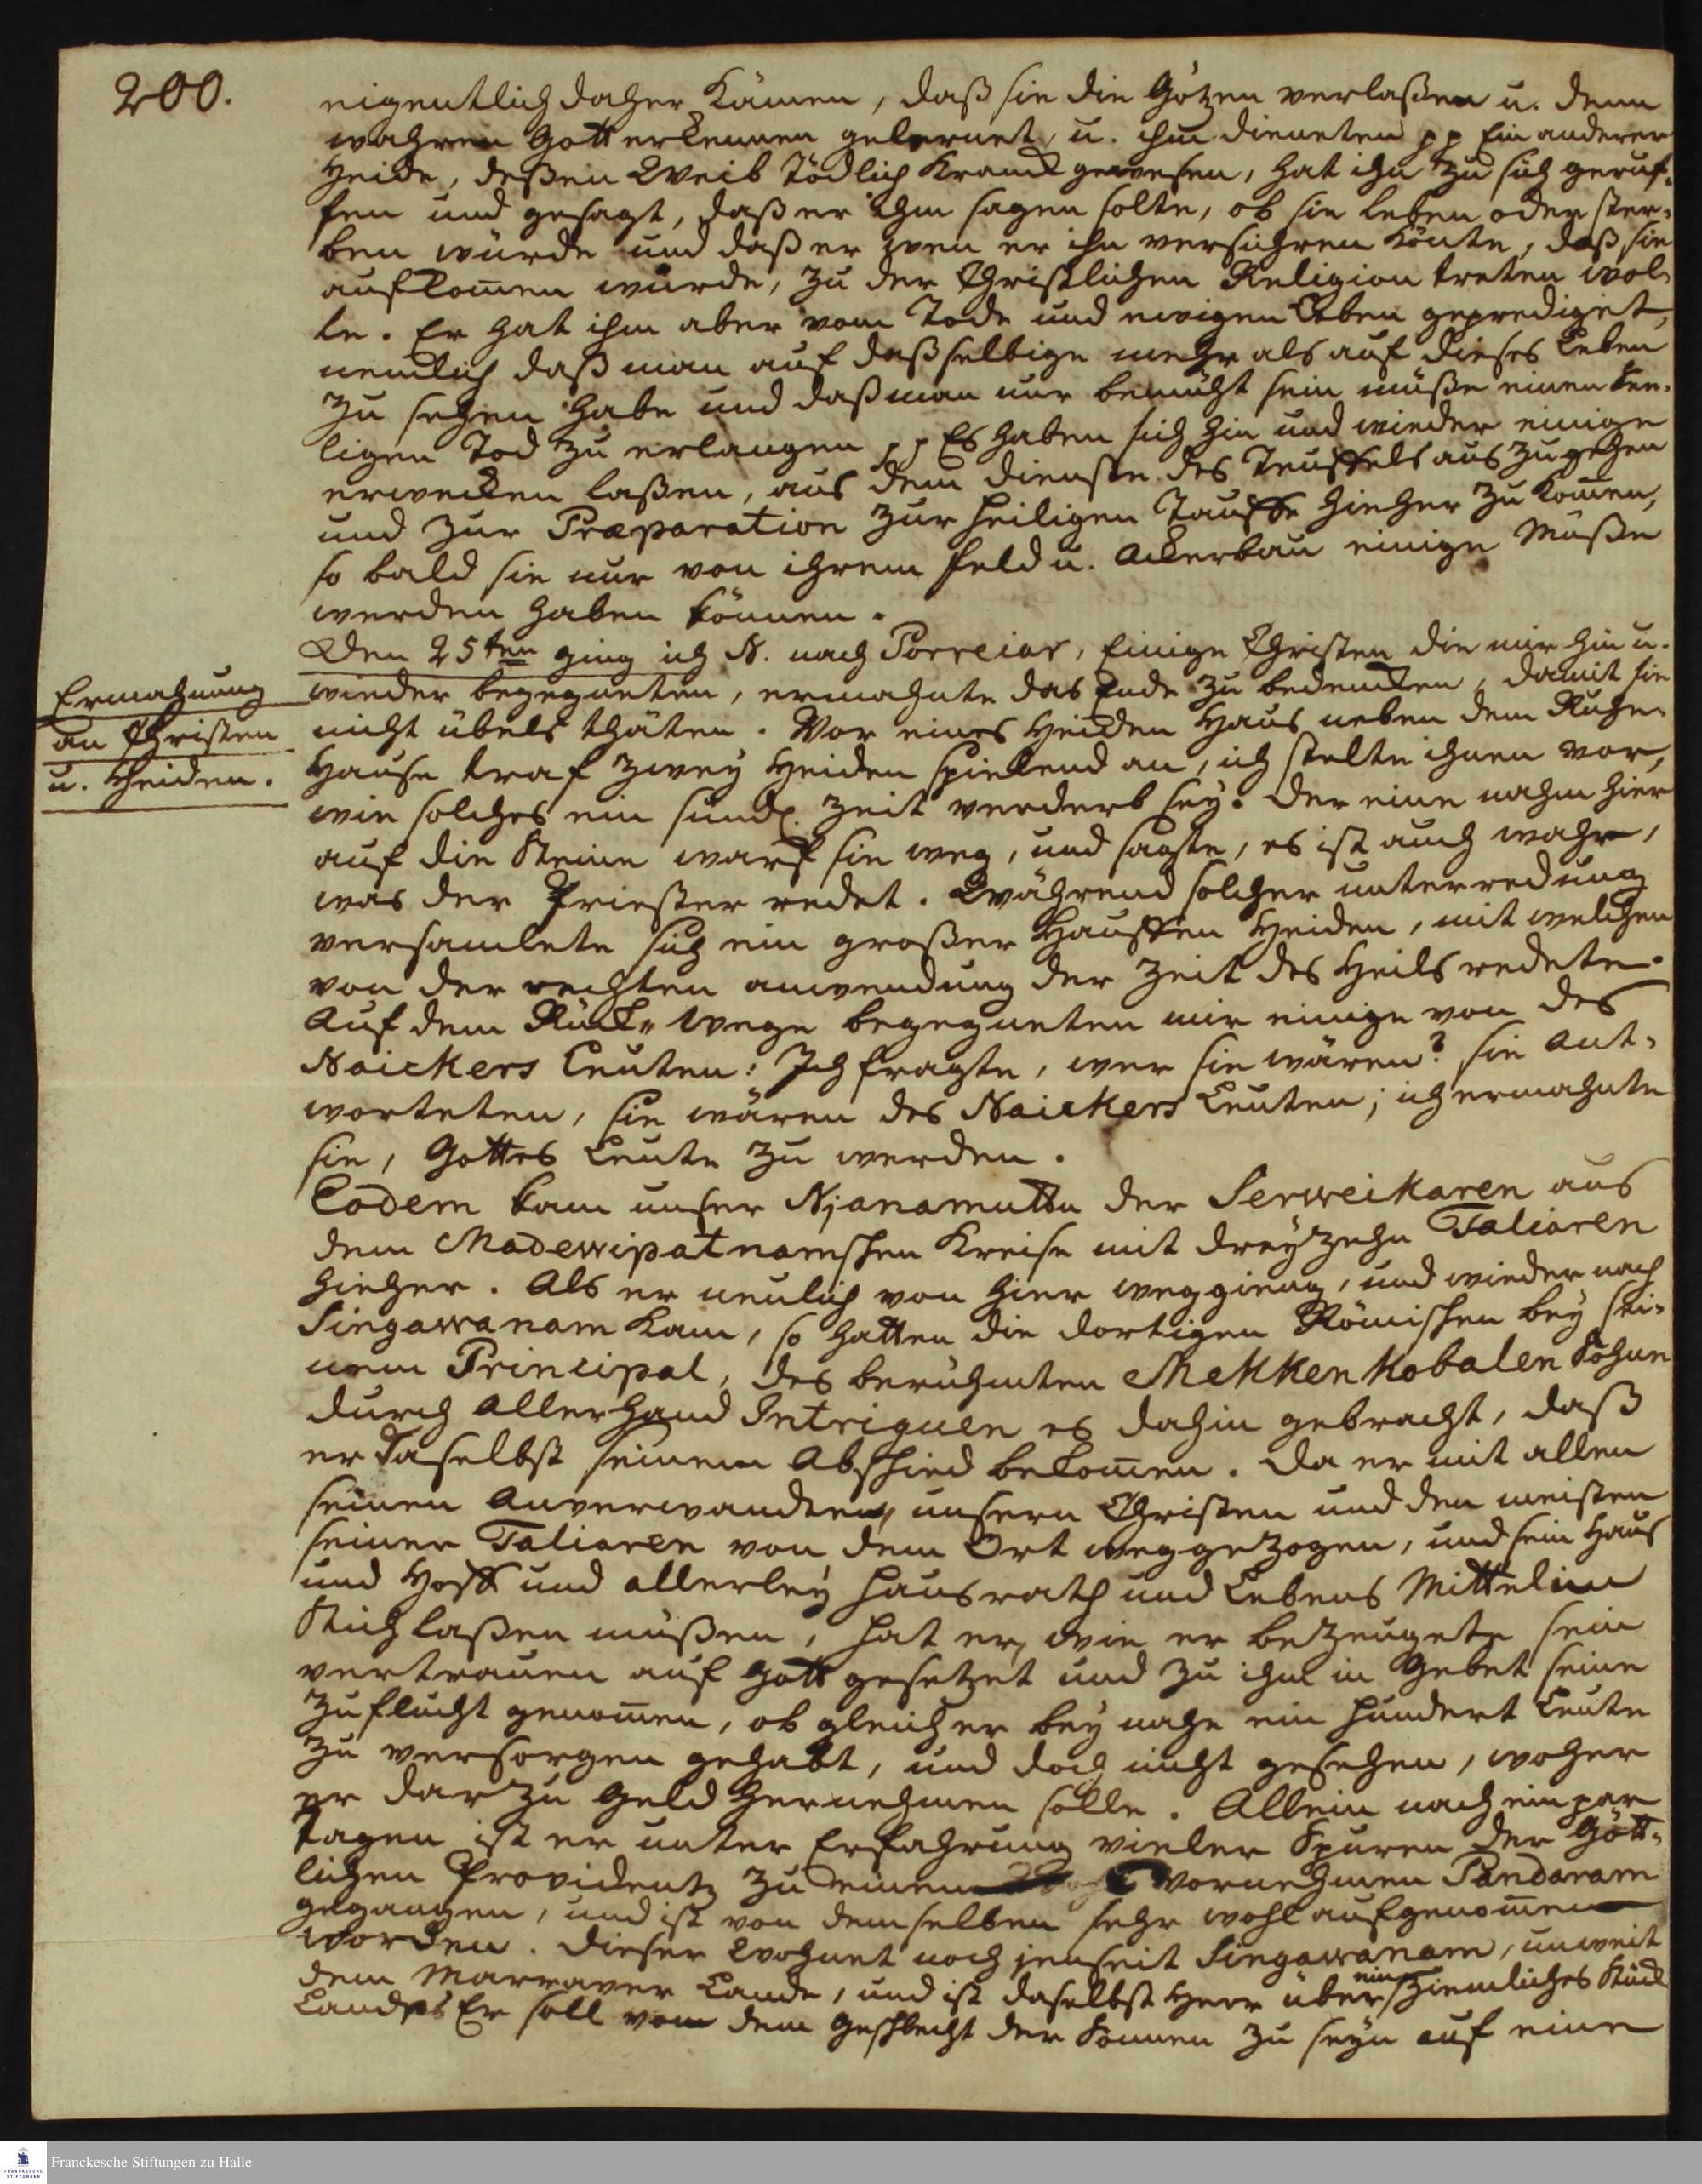 200.
eigentlich daher kämen, daß sie die Götzen verlaßen u. denn
wahren Gott erkennen gelernet, u. ihm dieneten pp Ein anderer
Heide, deßen Weib tödlich kranck gewesen, hat ihn zu sich geruf-
fen und gesagt, daß er ihm sagen solte, ob sie leben oder ster-
ben würde und daß er wen er ihn versichren könte, daß sie
aufkom̄en würde, zu der Christlichen Religion treten wol-
te. Er hat ihm aber vom Tode und ewigen Leben geprediget,
nemlich daß man auf daßselbige mehr als auf dieses Leben
zu sehen habe und daß man nur bemüht sein müße einen See-
ligen Tod zu erlangen pp Es haben sich hin und wieder einige
erwecken laßen, aus dem dienste des Teuffels aus zu gehen
und zur Præparation zur heiligen Tauffe hieher zu kom̄en,
so bald sie nur von ihrem feld u. Ackerbau einige Muße
werden haben können.
Den 25ten ging ich N. nach Porreiar, Einige Christen die mir hin u.
Ermahnung
an Christen
u. Heiden.
wieder begegneten, ermahnte das Ende zu bedencken, damit sie
nicht übels thäten. Vor eines Heiden Haus neben dem Ruhe-
Hause traf zwey Heiden spielend an, ich stelte ihnen vor,
wie solches ein sündl. Zeit verderb sey. Der eine nahm hier
auf die Steine warf sie weg, und sagte, es ist auch wahr,
was der Priester redet. Während solcher unterredung
versamlete sich ein großer Hauffen Heiden, mit welchen
von der rechten anwendung der Zeit des Heils redete.
Auf dem Rück-Wege begegneten mir einige von des
Naickers Leuten: Ich fragte, wer sie wären? sie Ant-
worteten, sie wären des Naickers Leuten; ich ermahnte
sie, Gottes Leute zu werden.
Eodem kam unser Njanamuttu der Serweikaren aus
dem Madewipatnamschen Kreise mit dreyzehn Taliaren
hieher. Als er neulich von hier weggieng, und wieder nach
Singawanam kam, so hatten die dortigen Römischen bey sei-
nem Principal, des berühmten Mekkenkobalen Sohne
durch Allerhand Intriguen es dahin gebracht, daß
er daselbst seinem Abschied bekom̄en. Da er mit allen
seinen Anverwandten, unsern Christen und den meisten
seiner Taliaren von dem Ort weggezogen, und sein Haus
und Hoff und allerley Hausrath und Lebens Mittel im
Stich laßen müßen, hat er, wie er bezeugete sein
vertrauen auf Gott gesetzet und zu ihm in Gebet seine
Zuflucht genom̄en, ob gleich er bey nahe ein hundert Leute
zu versorgen gehabt, und doch nicht gesehen, woher
er dar zu Geld hernehmen solle. Allein nach ein par
Tagen ist er unter Erfahrung vieler Spuren der Gött-
lichen Providentz zu einem vornehmen Pandaram
gegangen, und ist von demselben sehr wohl aufgenom̄en
worden. Dieser wohnet noch jenseit Singawanam, unweit
dem Marraver Lande, und ist daselbst Herr über ein ziemliches Stück
Landes Er soll von dem Geschlecht der Sonnen zu seyn auf eine
Franckesche Stiftungen zu Halle
FRANCKESCHE
STIFTUNGEN